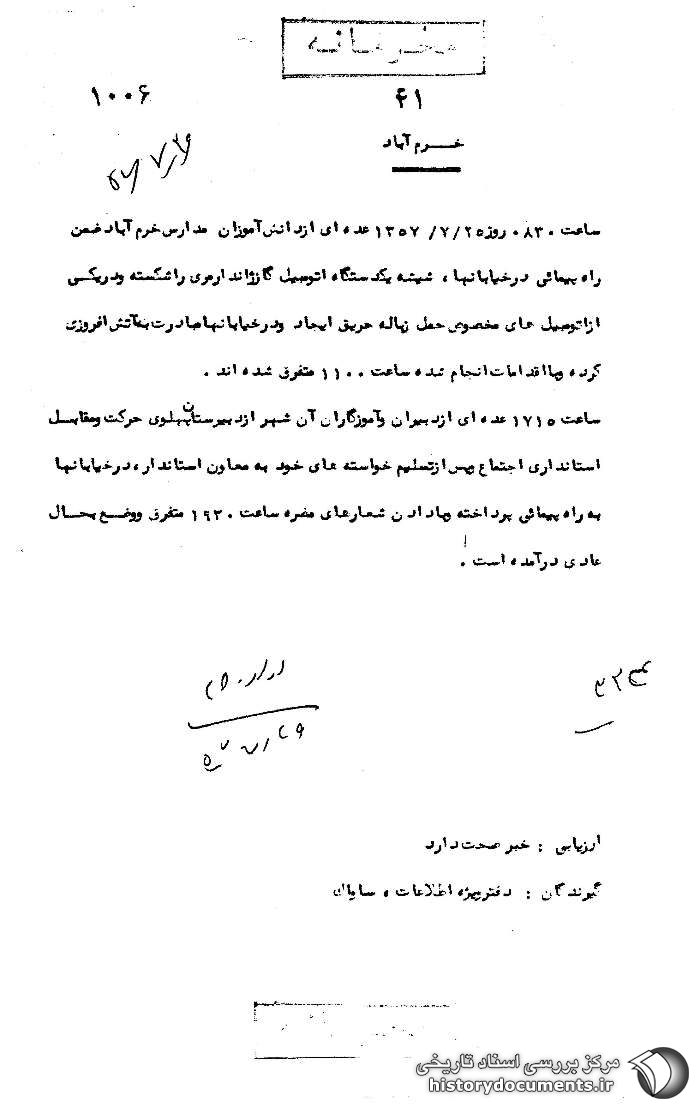 محرمانه
۴۱
۱۰۰۶
خرم آباد
ساعت ۰۸۳۰ روز ۱۳۵۷/۷/۲۵ عده ای از دانش آموزان مدارس خرم آباد ضمن
راه پیمائی در خیابانها ، شیشه یکدستگاه اتومبیل گاز ژاندارمری را شکسته و در یکی
از اتومبیل های مخصوص حمل زباله حریق ایجاد و در خیابانها مبادرت به آتش افروزی
کرده و با اقدامات انجام شده ساعت ۱۱۰۰ متفرق شده اند .
ساعت ۱۷۱۵ عده ای از دبیران و آموزگاران آن شهر از دبیرستان پهلوی حرکت و مقابل
استانداری اجتماع و پس از تسلیم خواسته های خود به معاون استاندار ، در خیابانها
به راه پیمائی پرداخته و با دادن شعارهای مضره ساعت ۱۹۲۰ متفرق و وضع بحال
عادی درآمده است .
ارزیابی : خبر صحت دارد
گیرندگان : دفتر ویژه اطلاعات ، ساواک
مرکز بررسی اسناد تاریخی
historydocuments.ir